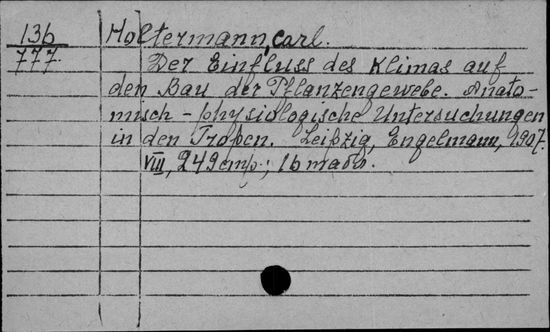 136 Holtermann, Carl.
777. Der Einfluss des Klimas auf
den Bau der Pflanzengewebe. Anato-
misch-physiologische Untersuchungen
in den Tropen. Leipzig, Engelmann, 1907.
VIII, 249 стр.; 16 табл.